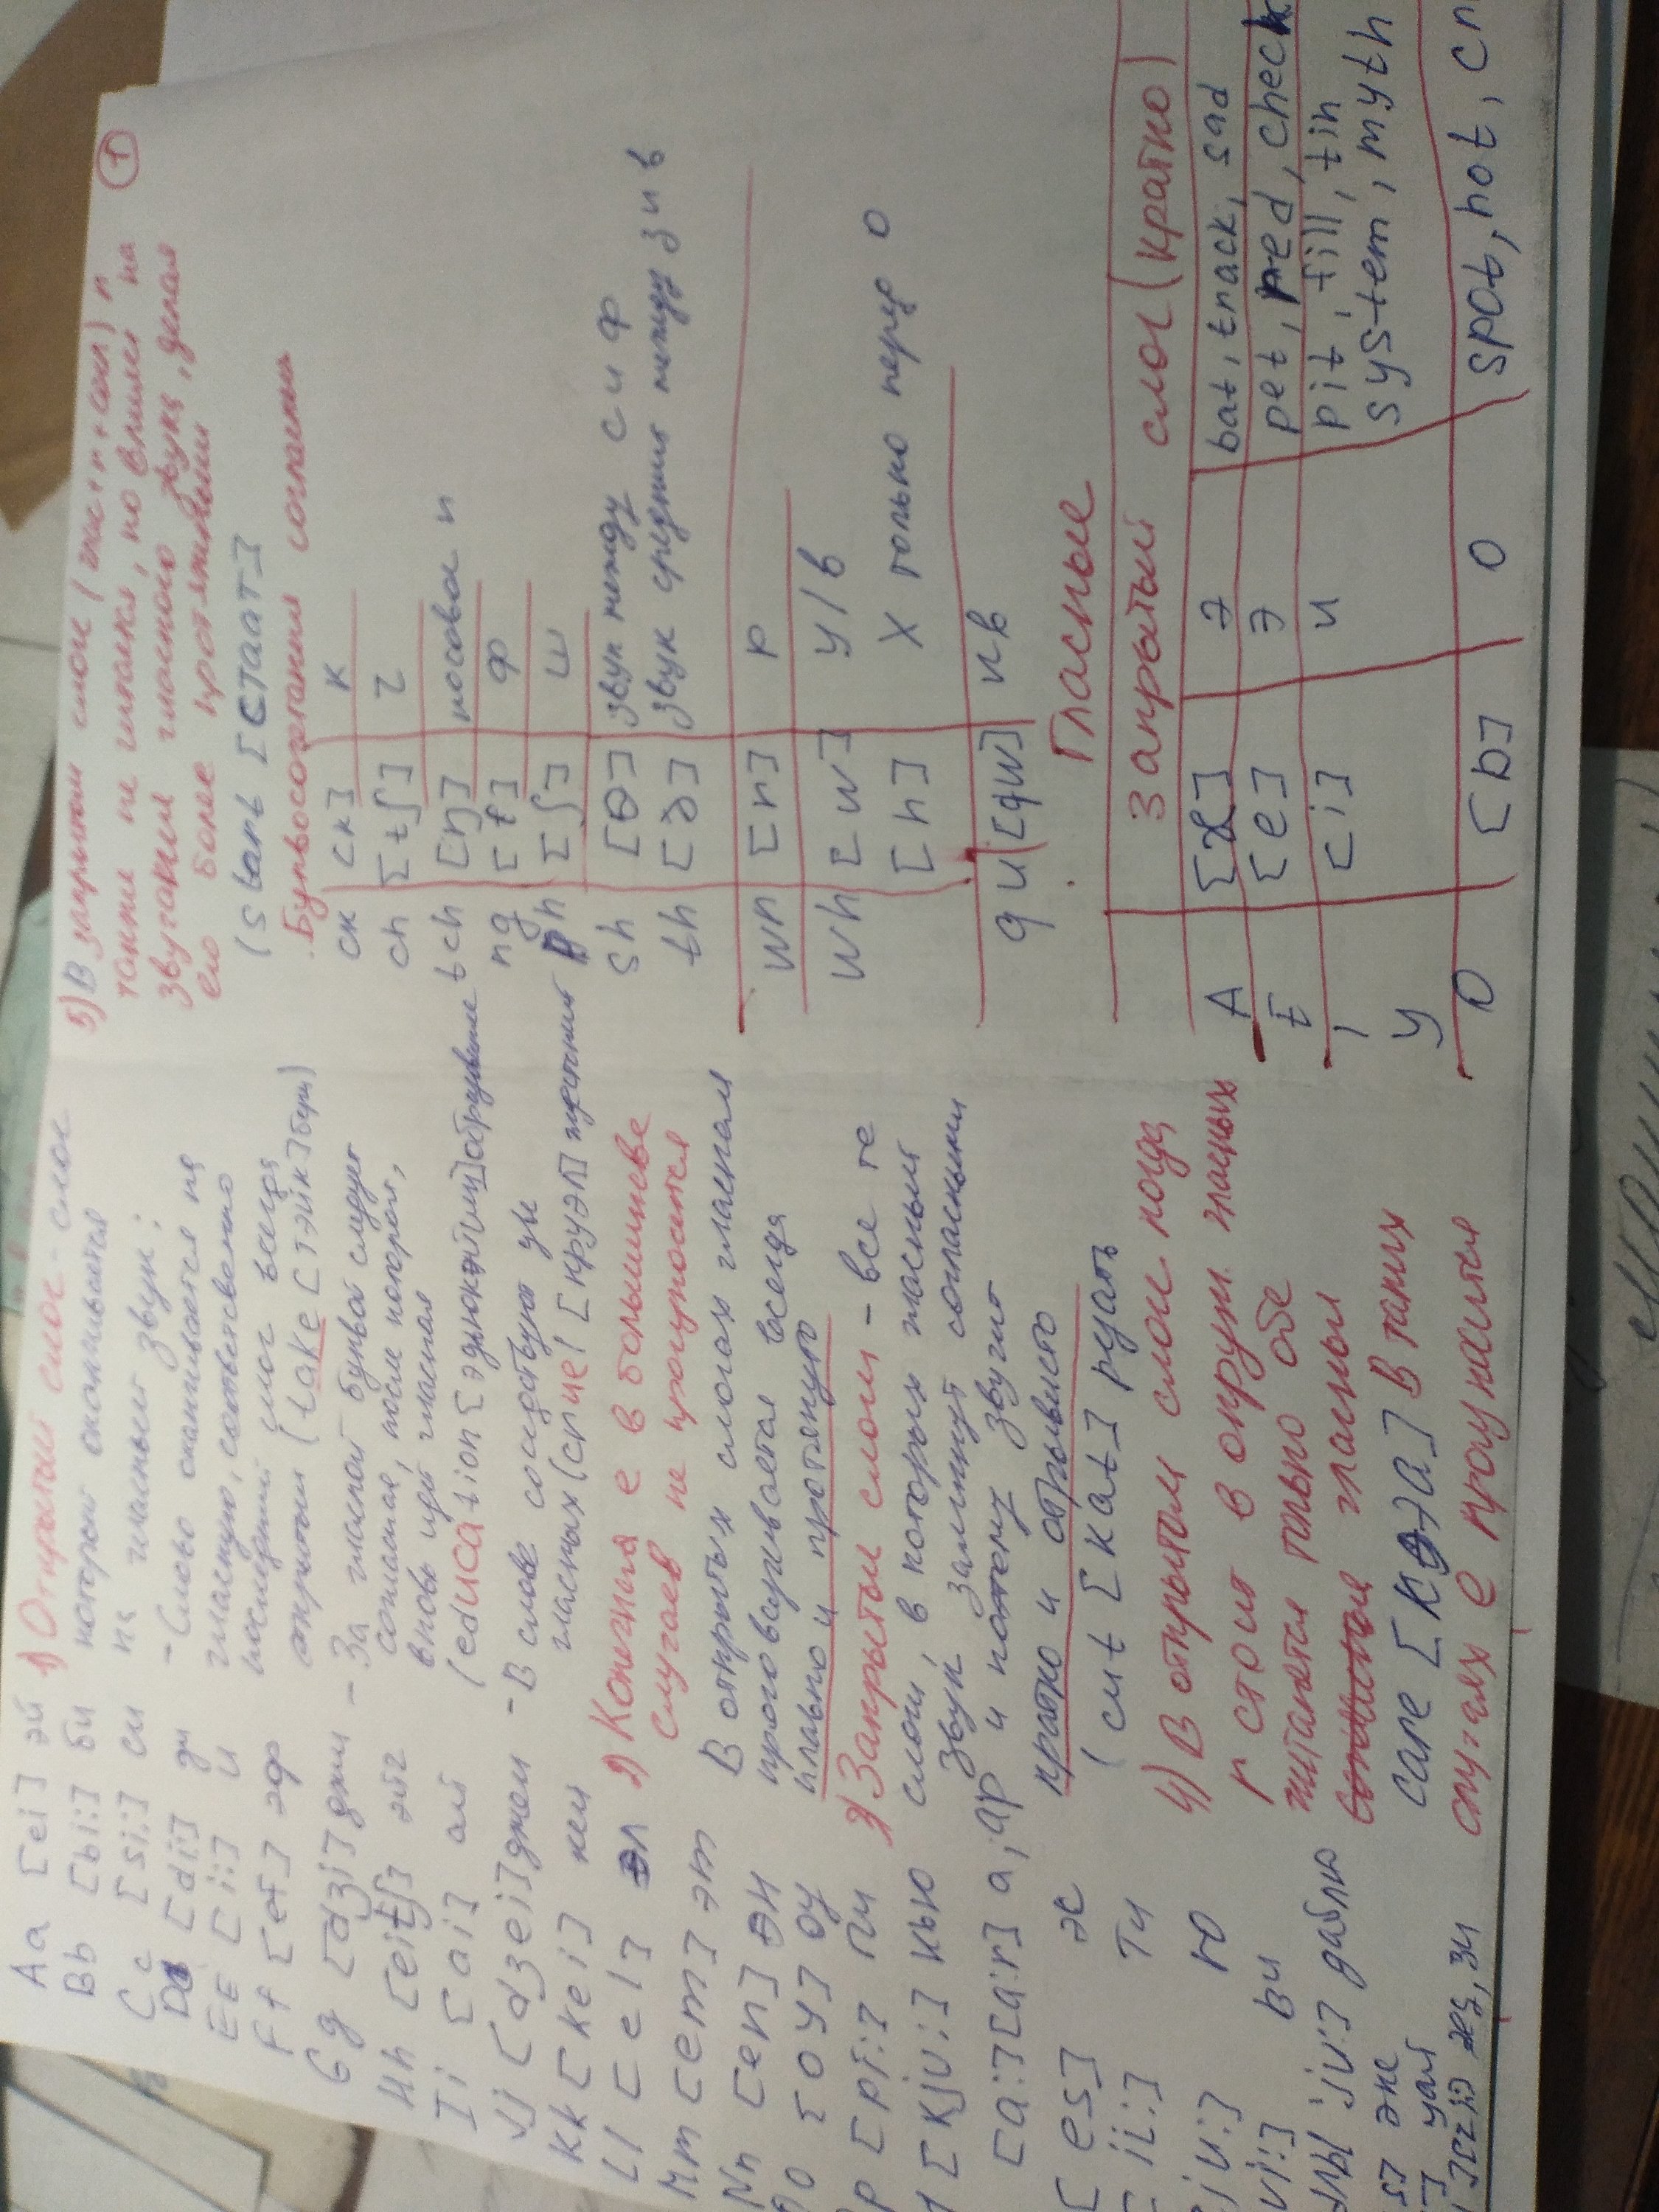 Aa [ei] эй
Bb [bi:] би
Cc [si:] си
Dd [di:] ди
EE [i:] и
Ff [ef] эф
Gg [dʒi] джи
Hh [eitʃ] эйч
Ii [ai] ай
Jj [dʒei] джей
Kk [kei] кей
Ll [el] эл
Mm [em] эм
Nn [en] эн
[oy] оу
p [pi:] пи
[kju:] кью
[a:] [a:r] а, ар
[es] эс
ti:] Ти
ju:] Ю
vi:] ви
'ju:] дабл
уай
зи
1) Открытый слог - слог
который оканчивается
на гласный звук:
- Слово оканчивается на
гласную, соответственно
последний слог всегда
открытый (take [тэйк] бери)
- За гласной буквой следует
согласная, после которой,
вновь идет гласная
(education [эдьюкэйшн] образование
- В слове соседствуют две
гласных (cruel [круэл] жестокий
2) Конечная е в большинстве
случаев не произносится
В открытых слогах гласная
проговаривается всегда
плавно и протянуто
3) Закрытые слоги - все те
слоги, в которых гласный
звук замкнут согласными
и потому звучит
кратко и отрывисто
(cut [кат] резать
4) В открытом слоге когда
r стоит в окруж. гласных
читаются только обе
гласные
care [кэа] В таких
случаях е произносится
1
5) В закрытом слоге (глас+r+согл) r
также не читается, но влияет на
звучание гласного звука, делая
его более протяжным
(start [стаат]
Буквосочетания согласных
ck [k] к
ch [tʃ] ч
tch
ng [ŋ] носовая н
ph [f] ф
sh [ʃ] ш
th [θ] звук между с и ф
[ð] звук средний между з и в
wr [r] р
wh [w] у/в
[h] х только перед о
qu [qw] кв
Гласные
Закрытый слог (кратко)
A [æ] э bat, track, sad
E [e] э pet, red, check
I [i] и pit, fill, tin
y system, myth
O [ɒ] о spot, not, cr